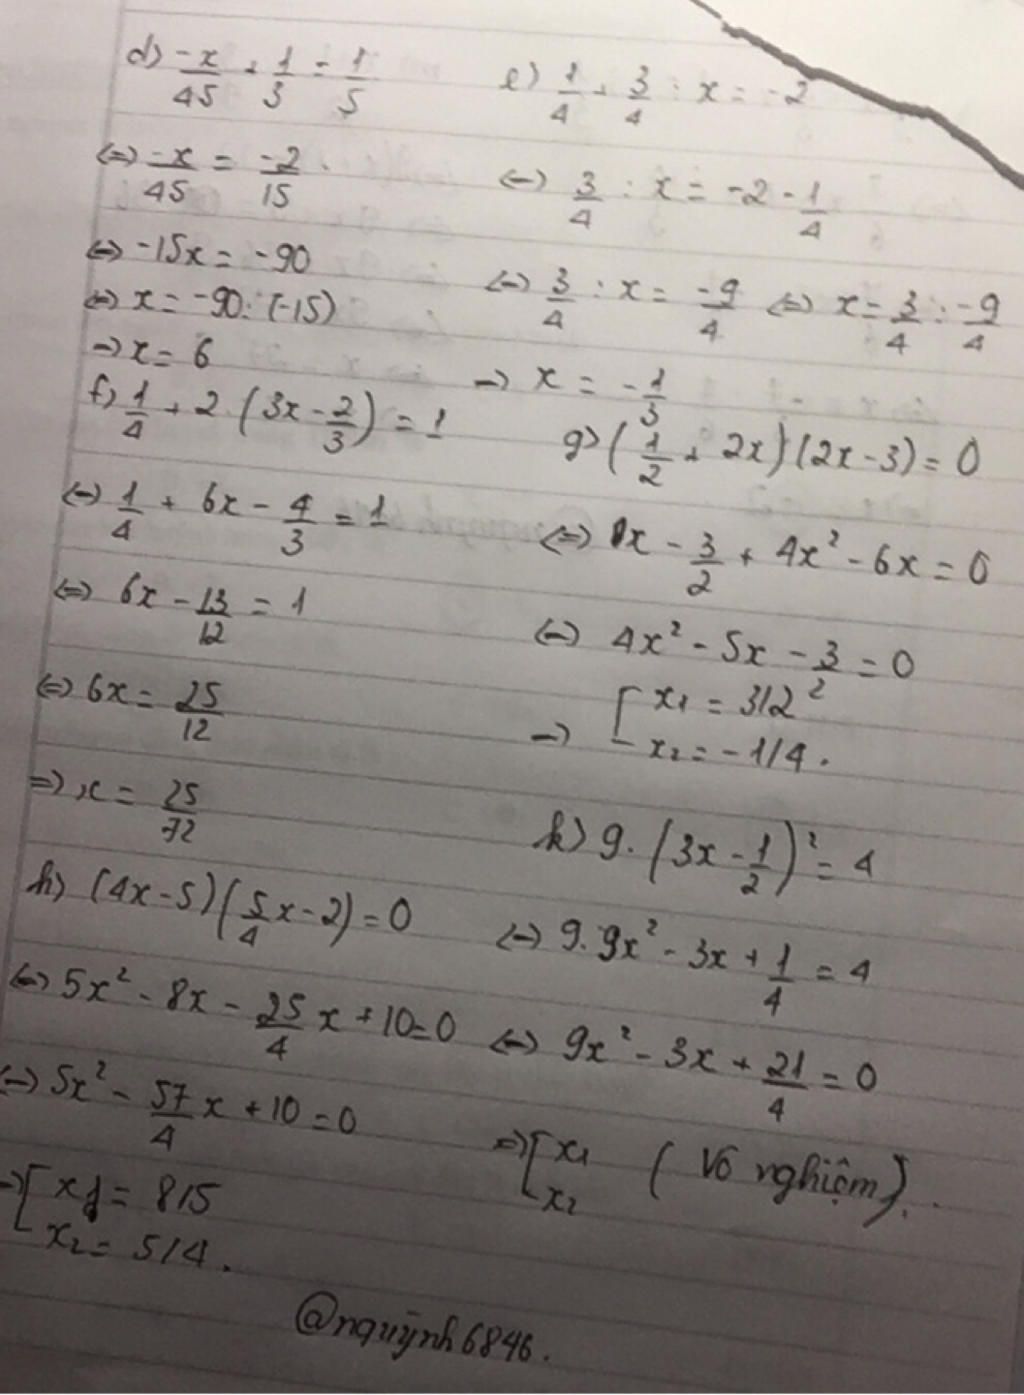 d) -x/45 + 1/3 = 1/5
<=> -x/45 = -2/15
<=> -15x = -90
<=> x = -90 : (-15)
=> x = 6
e) 1/4 + 3/4 : x = -2
<=> 3/4 : x = -2 - 1/4
<=> 3/4 : x = -9/4 <=> x = 3/4 : -9/4
=> x = -1/3
f) 1/4 + 2 . (3x - 2/3) = 1
<=> 1/4 + 6x - 4/3 = 1
<=> 6x - 13/12 = 1
<=> 6x = 25/12
=> x = 25/72
g) (1/2 + 2x)(2x - 3) = 0
<=> x - 3/2 + 4x² - 6x = 0
<=> 4x² - 5x - 3/2 = 0
=> [ x₁ = 3/2
x₂ = -1/4 .
h) (4x - 5)(5/4x - 2) = 0
<=> 5x² - 8x - 25/4 x + 10 = 0
<=> 5x² - 57/4 x + 10 = 0
=> [ x₁ = 8/5
x₂ = 5/4 .
k) 9 . (3x - 1/2)² = 4
<=> 9 . 9x² - 3x + 1/4 = 4
<=> 9x² - 3x + 21/4 = 0
=> [ x₁ ( Vô nghiệm ) .
x₂
@nquỳnh6846.